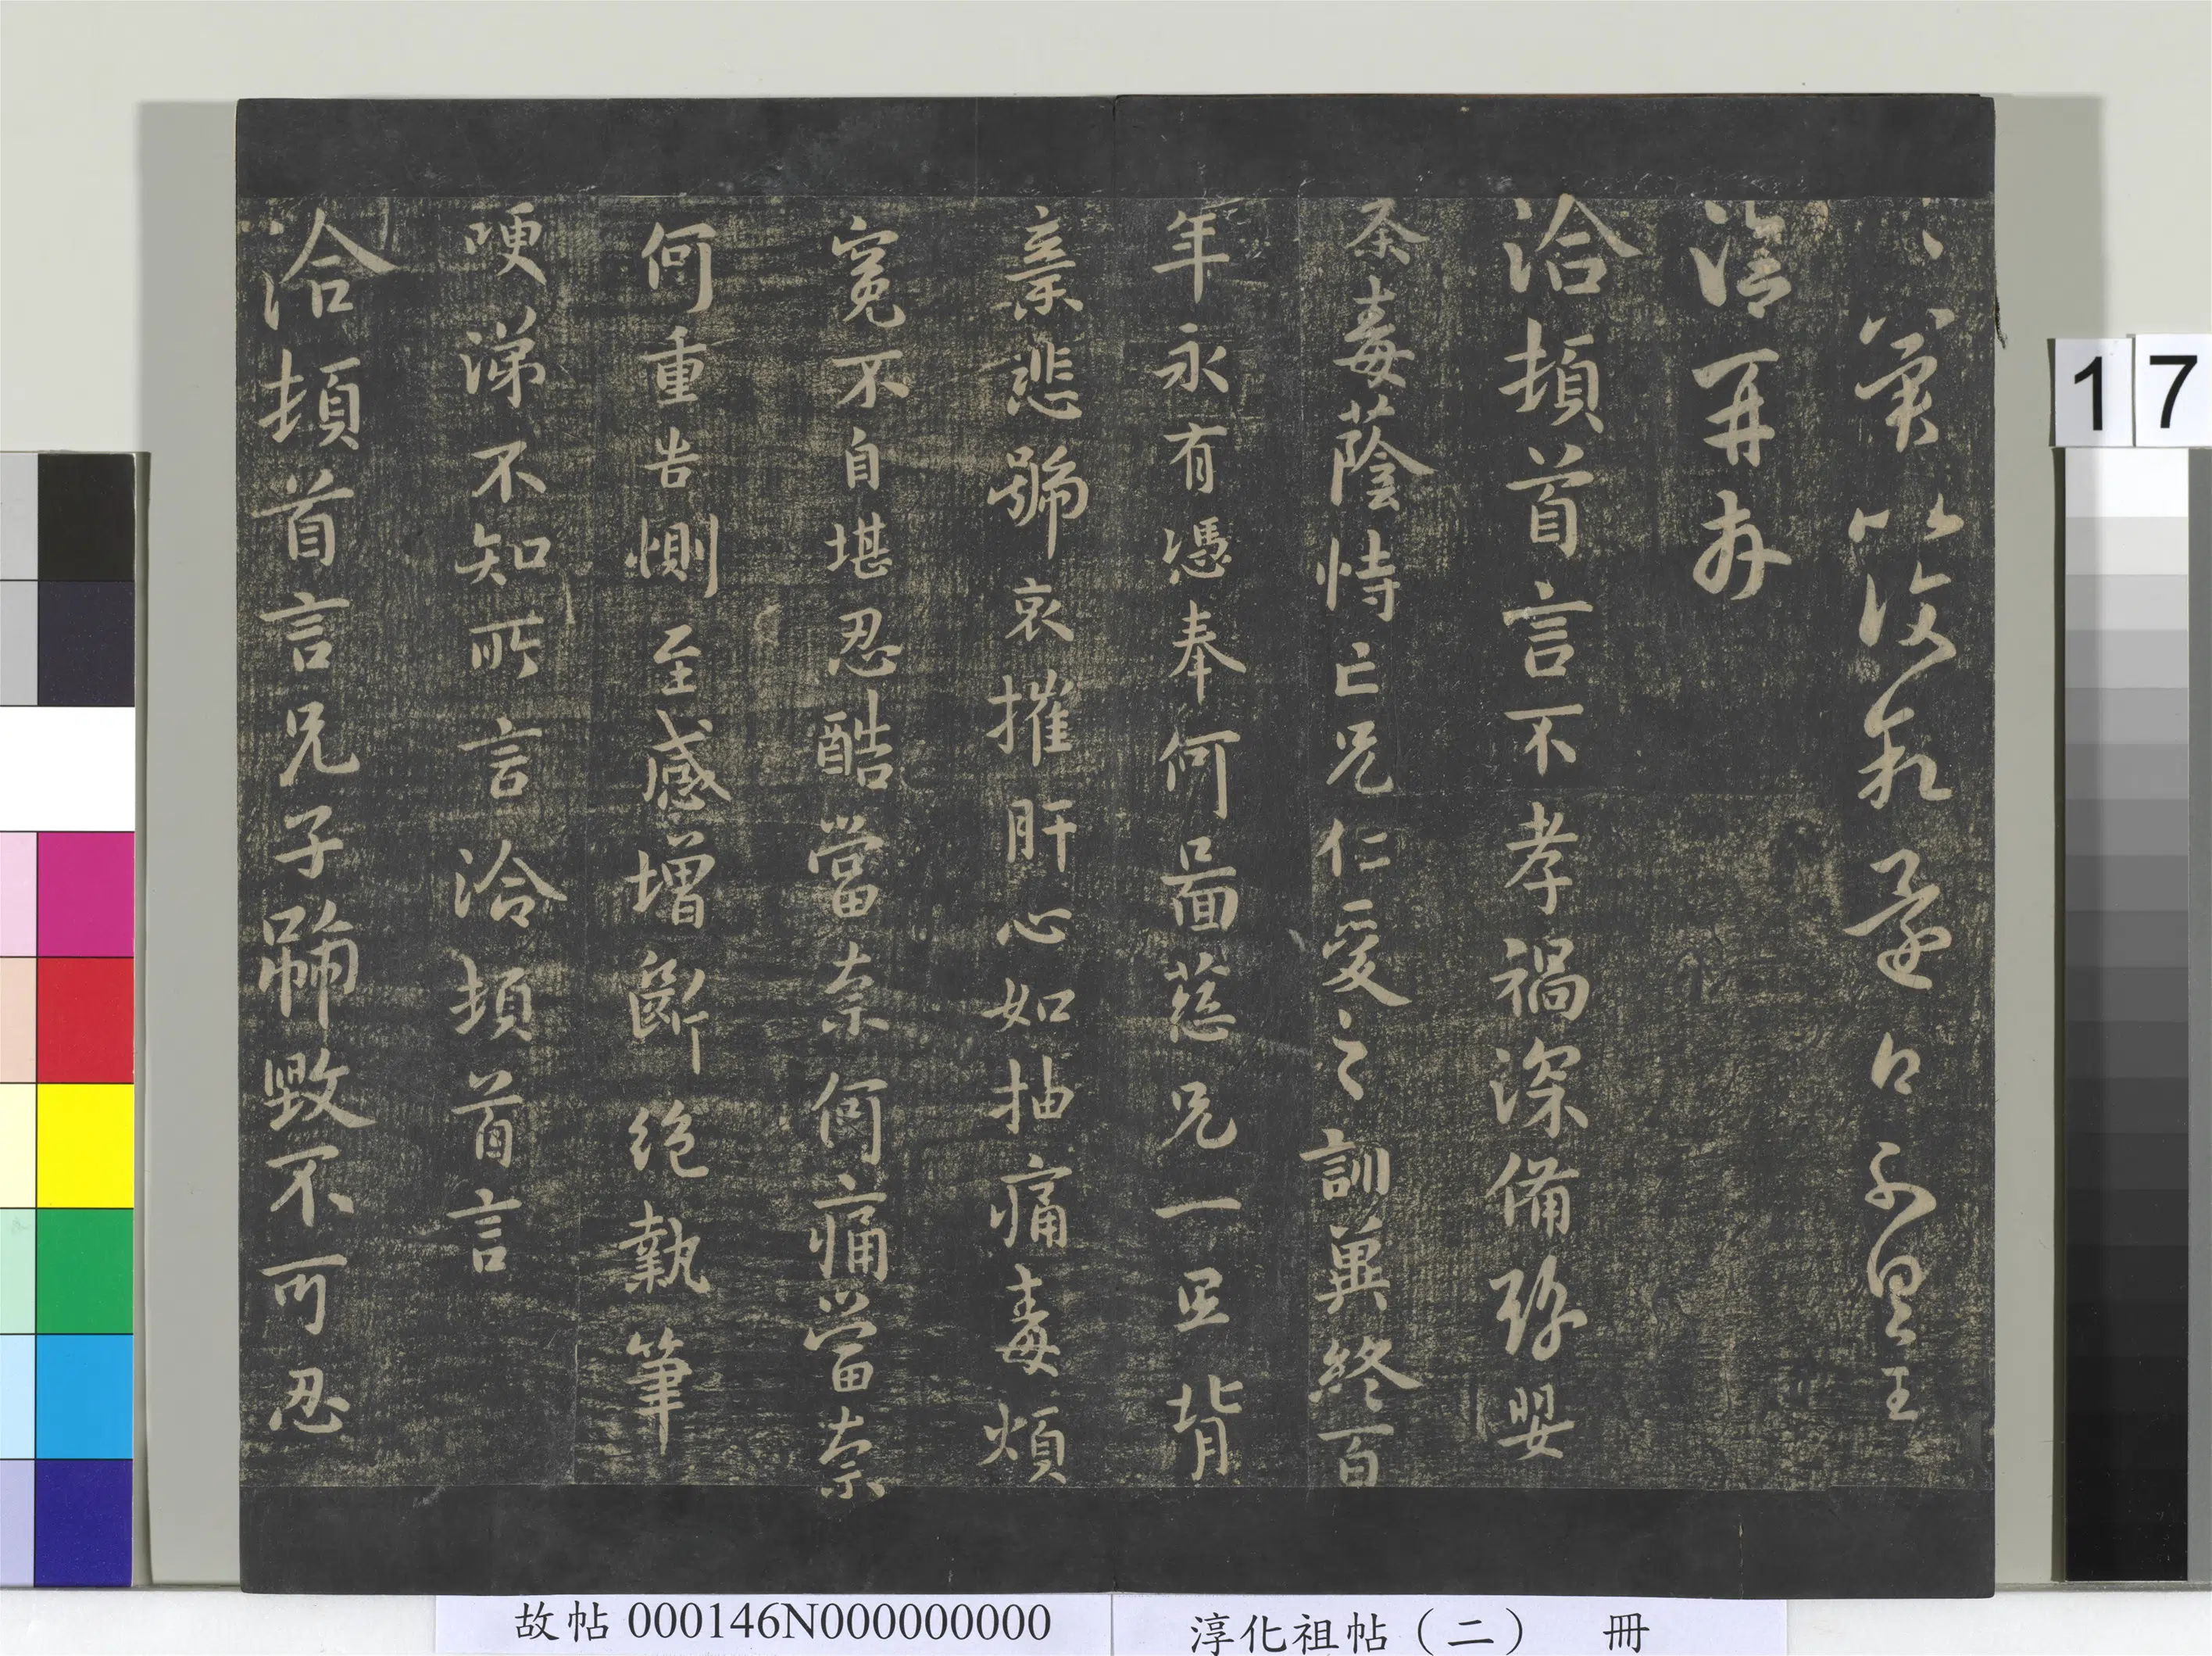 不具王
洽再拜
洽頓首言不孝禍深備嬰
荼毒蔭恃亡兄仁愛之訓冀終百
年永有憑奉何圖慈兄一旦背
棄悲號哀摧肝心如抽痛毒煩
冤不自堪忍酷當奈何痛當奈
何重告惻至感增斷絕執筆
哽涕不知所言洽頓首言
洽頓首言兄子號毀不可忍
17
故帖000146N000000000
淳化祖帖（二） 冊